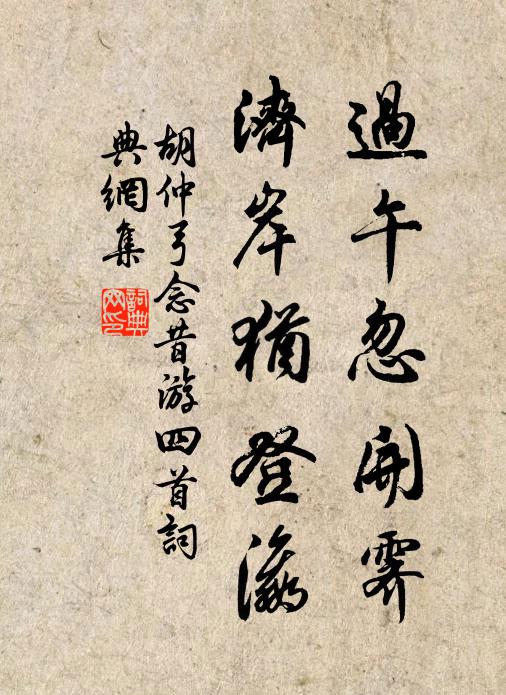 過午忽開霽
濟岸猶登瀛
胡仲弓念昔游四首詞
典網集
詞典
网印